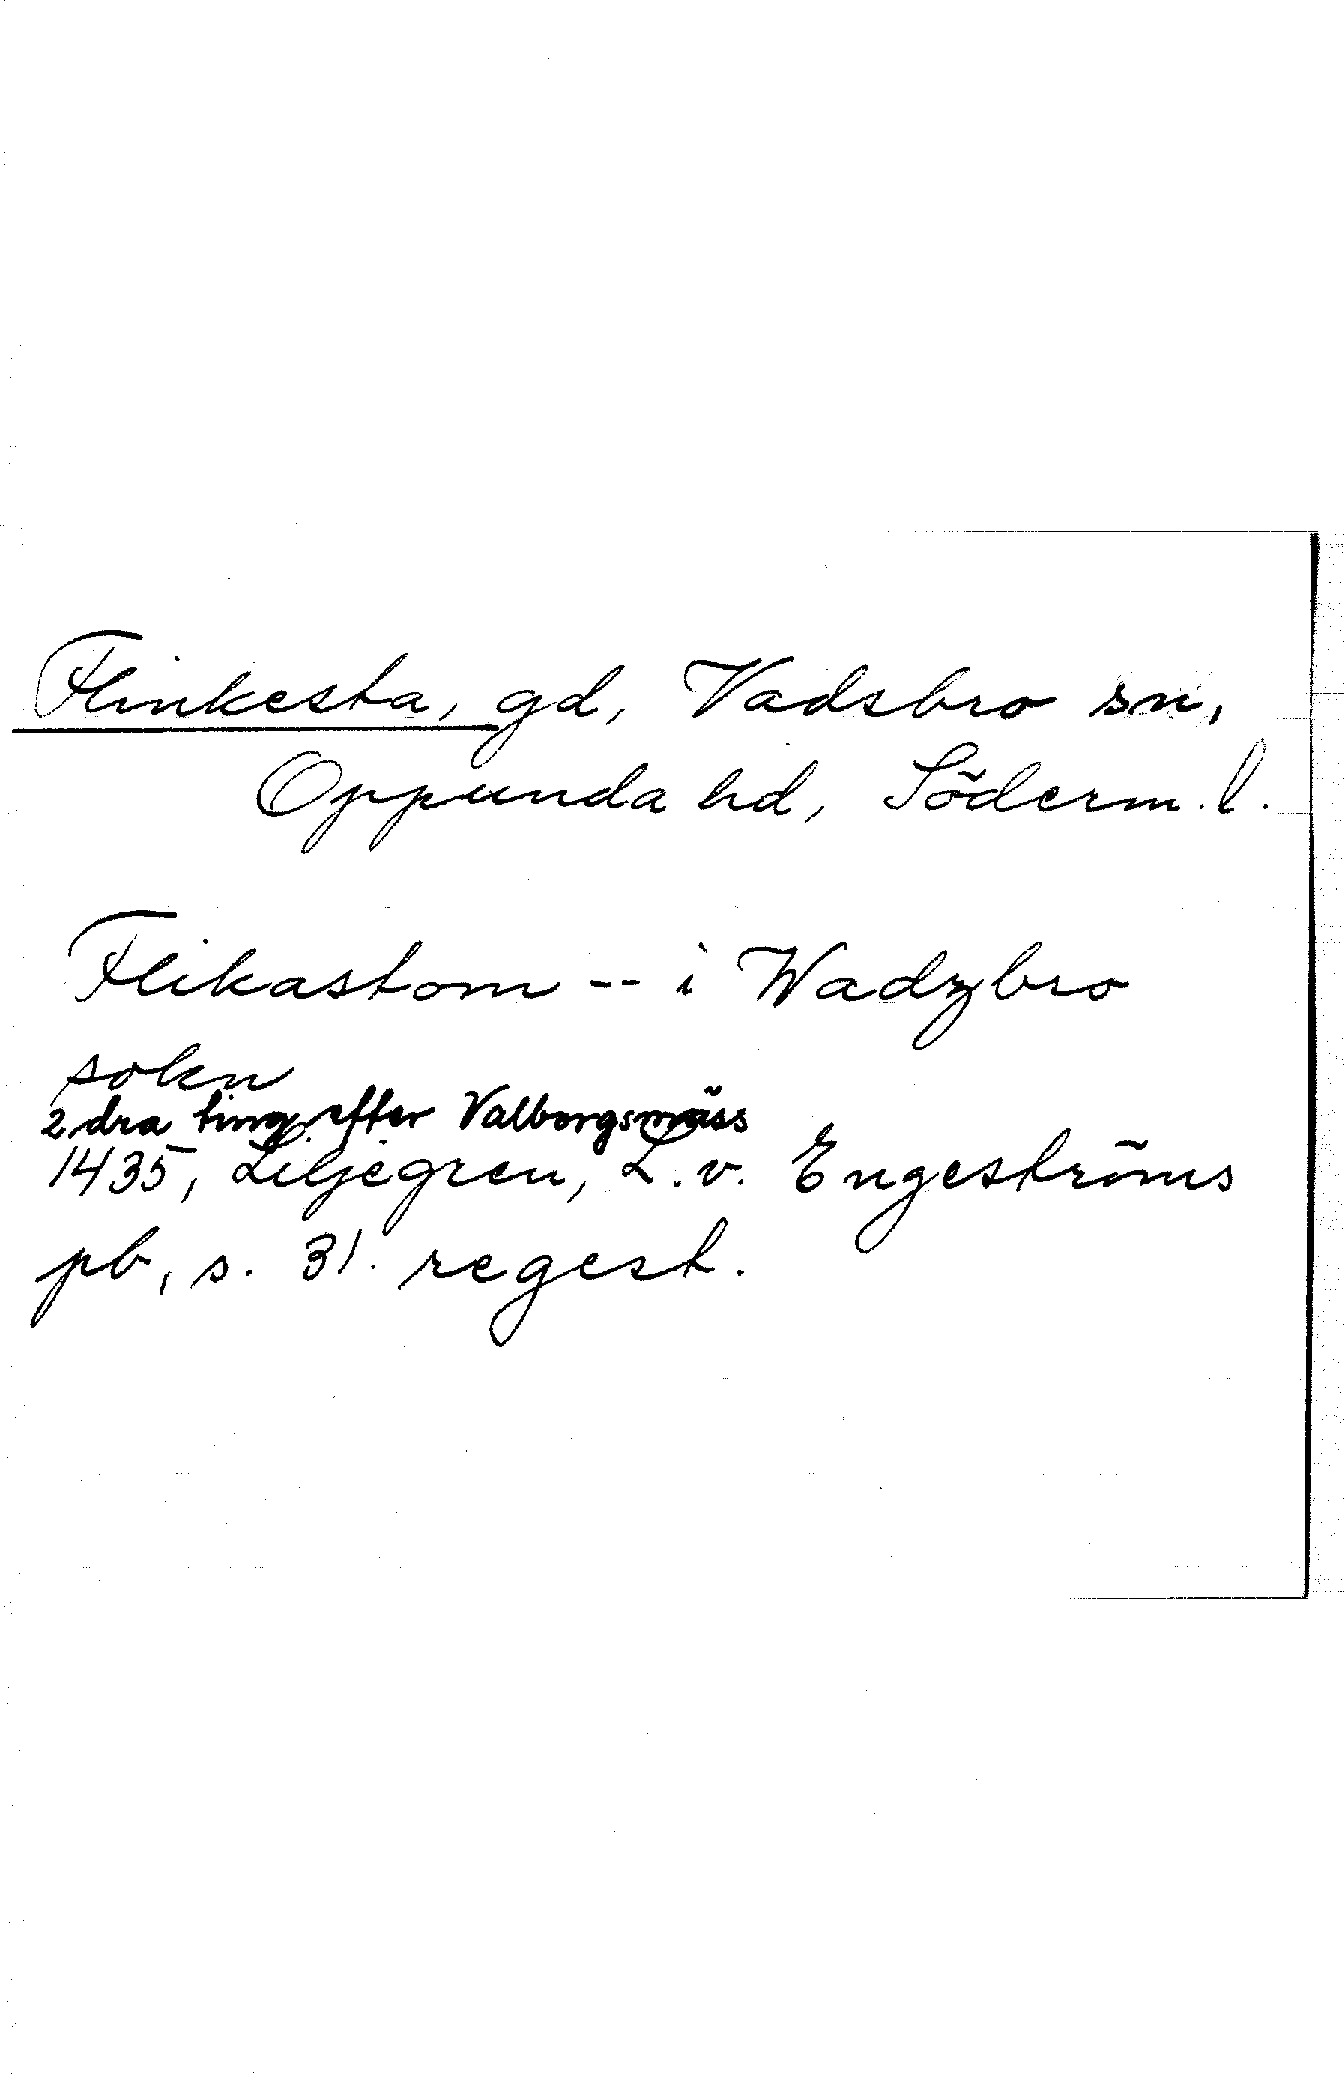 Flinkesta, gd, Vadsbro sn,
Oppunda hd, Söderm. l.
Flikastom -- i Wadzbro
sokn
2 dra ting efter Valborgsmäss
1435, Liljegren, L. v. Engeströms
pb, s. 31. regest.